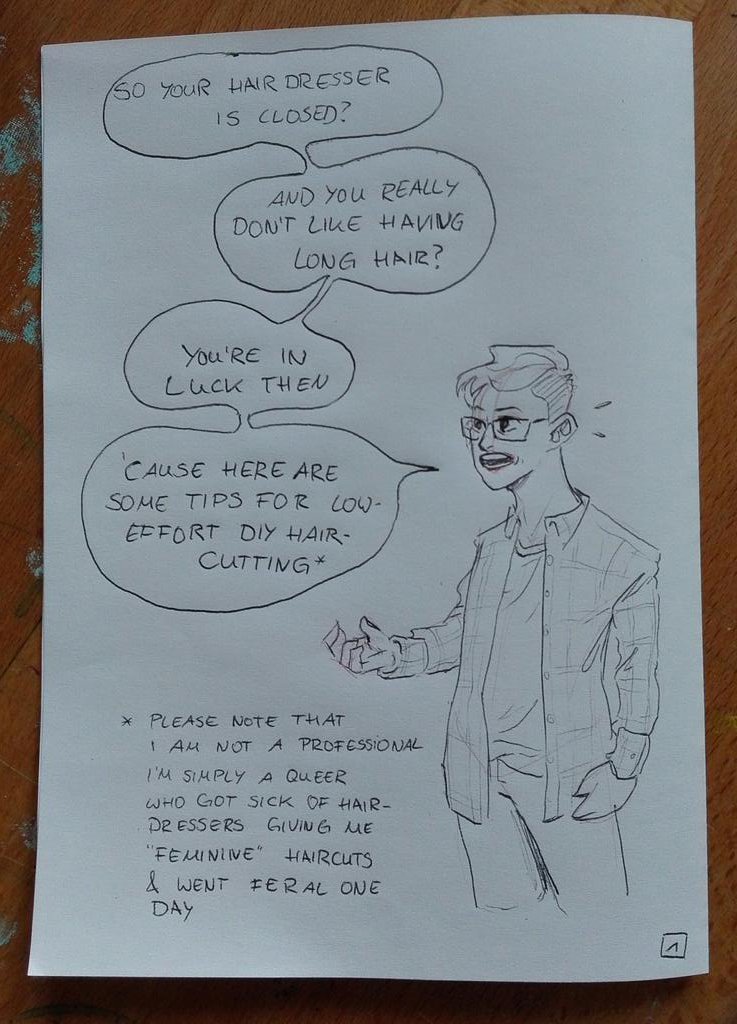 SO YOUR HAIRDRESSER
IS CLOSED?
AND YOU REALLY
DON'T LIKE HAVING
LONG HAIR?
YOU'RE IN
LUCK THEN
'CAUSE HERE ARE
SOME TIPS FOR LOW-
EFFORT DIY HAIR-
CUTTING*
* PLEASE NOTE THAT
I AM NOT A PROFESSIONAL
I'M SIMPLY A QUEER
WHO GOT SICK OF HAIR-
DRESSERS GIVING ME
"FEMININE" HAIRCUTS
& WENT FERAL ONE
DAY
1